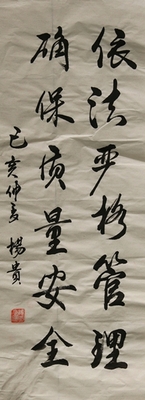 依法严格管理
确保质量安全
己亥仲夏 杨贵